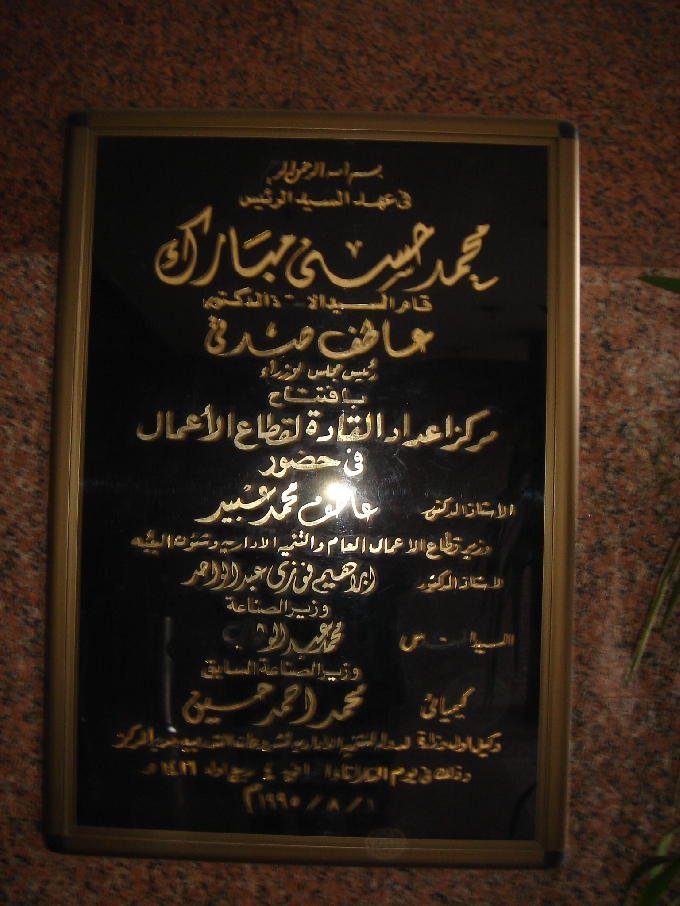 بسم الله الرحمن
فى عهد السيد الرئيس
محمد حسنى مبارك
قام السيد الدكتور
عاطف صدقى
رئيس مجلس الوزراء
بافتتاح
مركز اعداد القادة لقطاع الأعمال
فى حضور
الاستاذ الدكتور عاطف محمد عبيد
وزير قطاع الاعمال العام والتنميه الاداريه وشئون البيئه
الاستاذ الدكتور ابراهيم فوزى عبدالواحد
وزير الصناعة
السيد محمد
وزير الصناعة السابق
كيميائى محمد احمد حسين
وكيل اول وزارة المركز
وذلك فى يوم ٤ ربيع اول ١٤١٦ هـ
١ / ٨ / ١٩٩٥ م